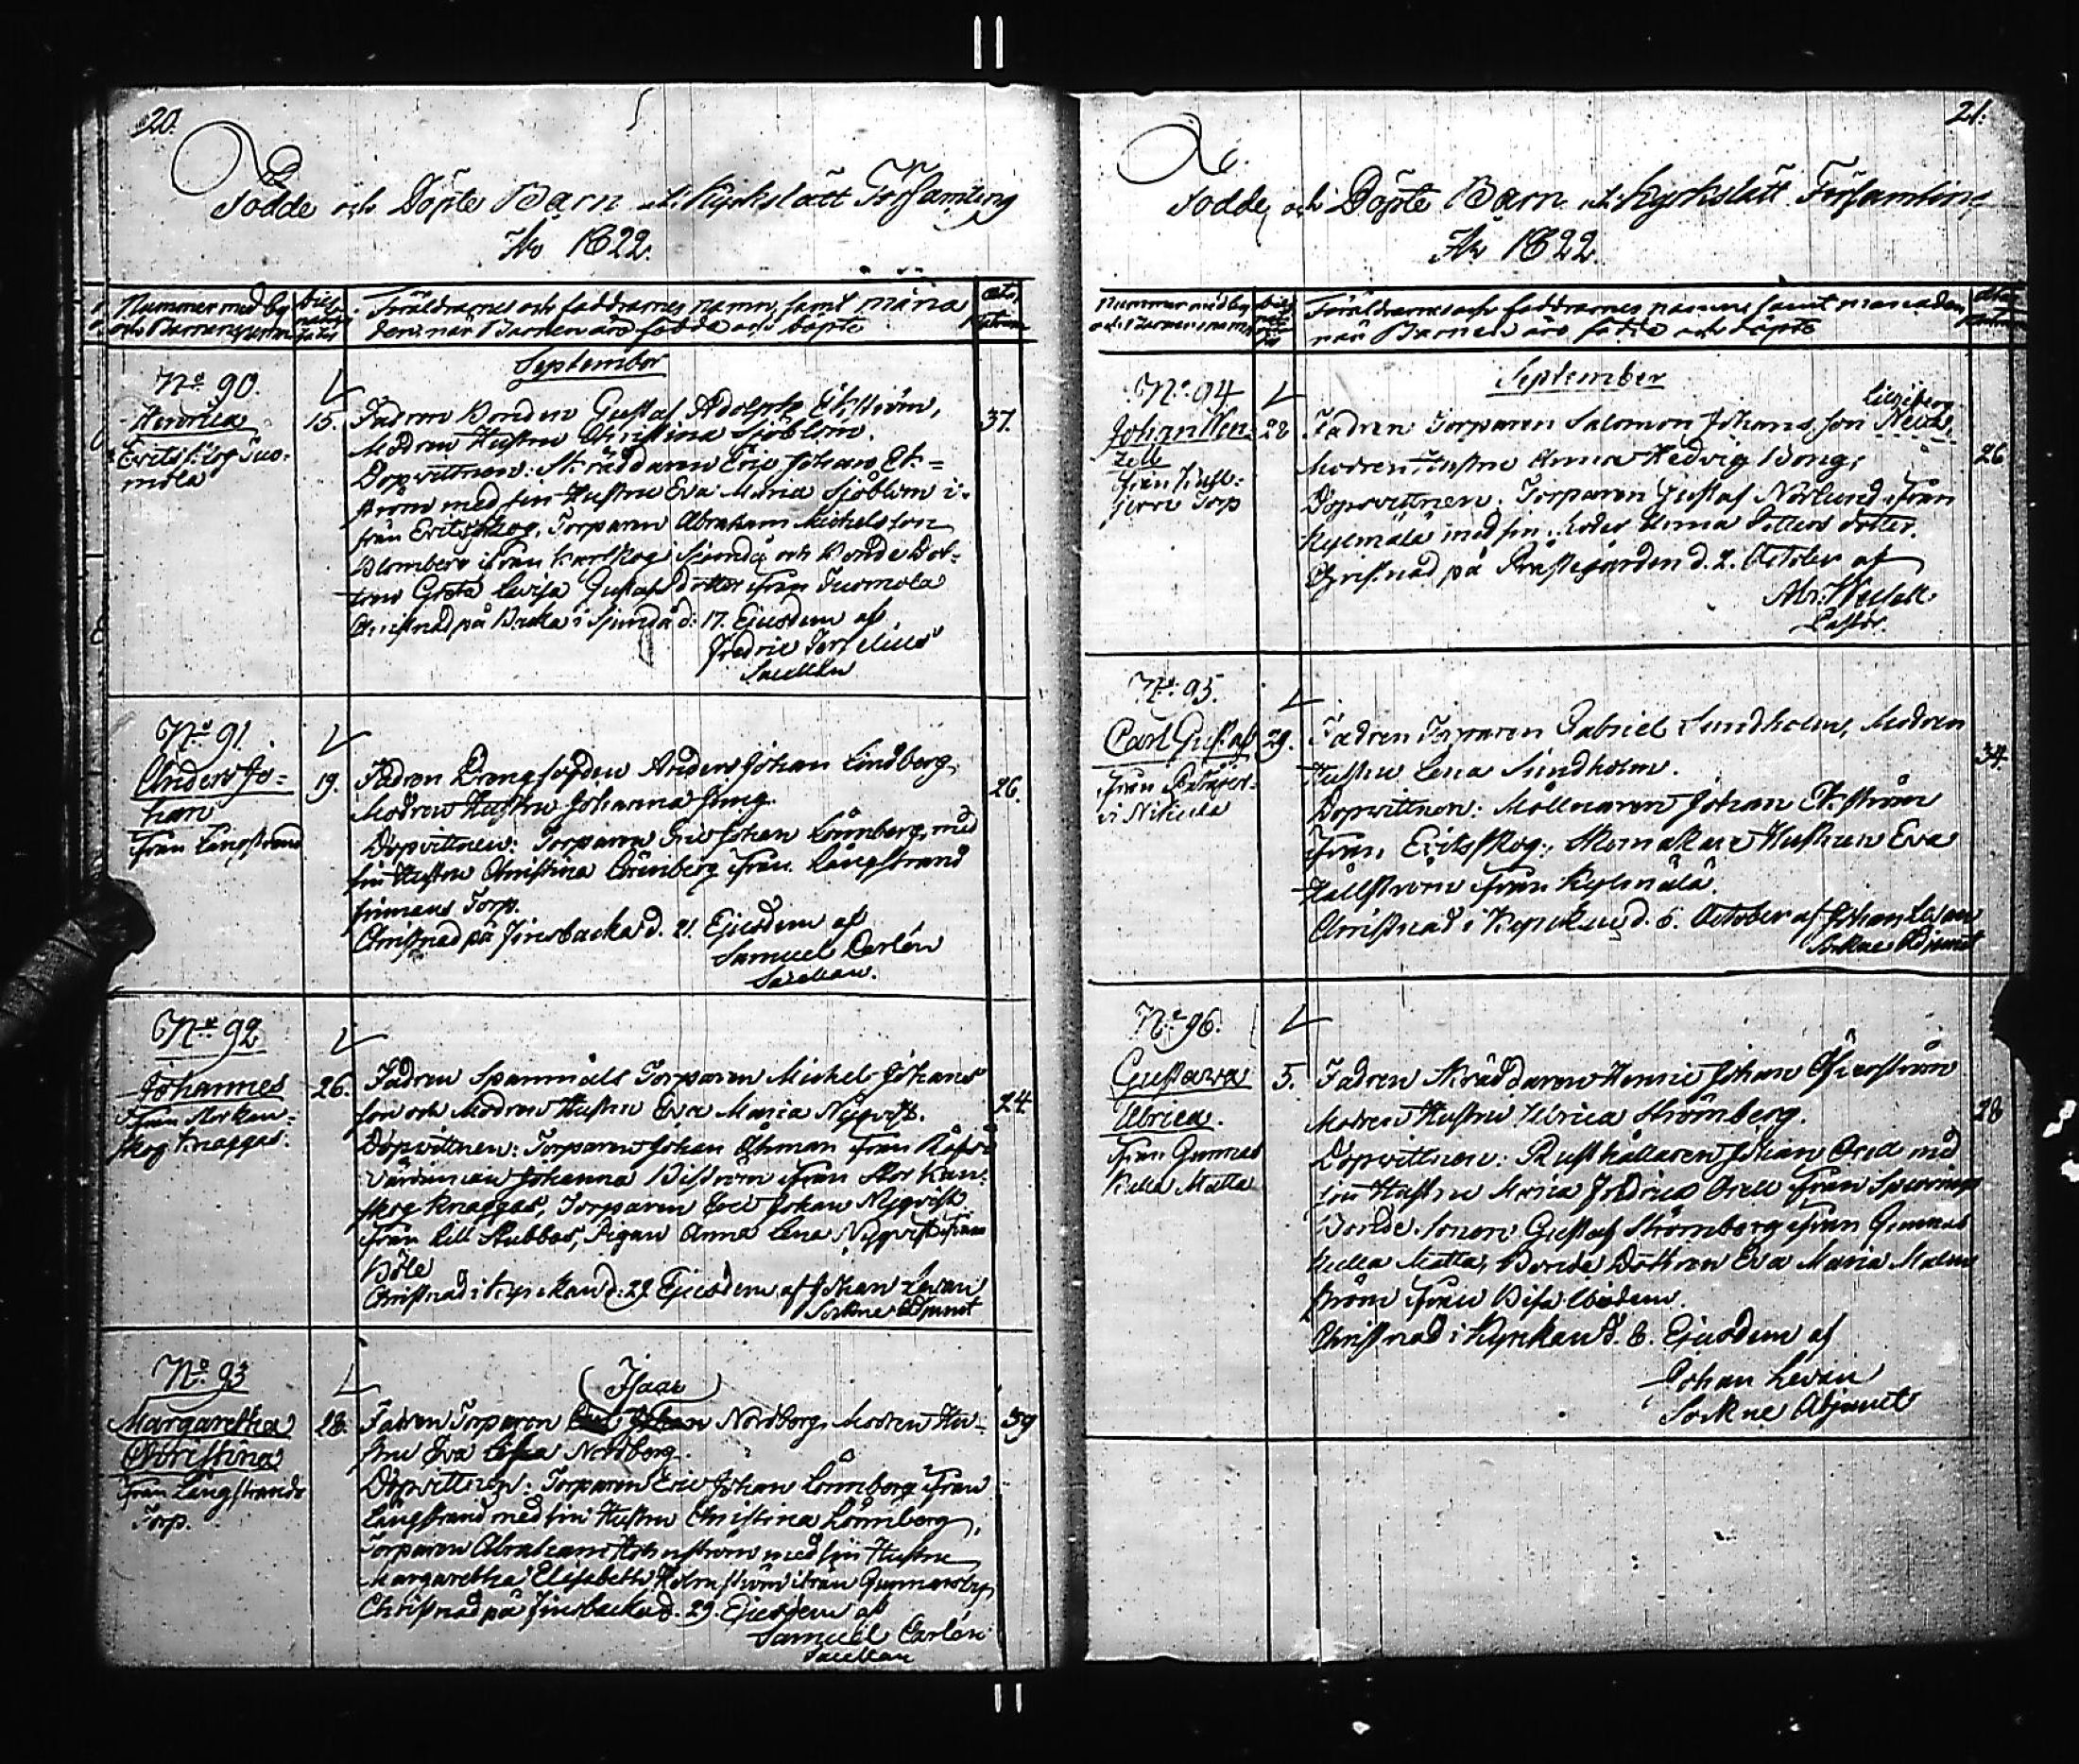 20.
Födde och Döpte Barn uti Kyrkslätt Församling
År 1822.
Nummer med by
och Barnens namn
Föräldrarnes och faddrarnes namn, samt måna
den när Barnen äro födde och döpte
September
No 90.
Henrica
Eritsby Tuo-
mola
15.
Fadren Bonden Gustaf Adolph Ekström,
Modren Hustru Christina Sjöblom.
Dopvittnen: Skräddaren Eric Johan Ek=
ström med sin Hustru Eva Maria Sjöblom i-
från Eritsskog, Torparen Abraham Michelsson
Blomberg ifrån Karskog i Sjundå och Bonde Dot-
tren Greta Lovisa Gustafsdotter ifrån Tuomola
Christnad på Backa i Sjundå d: 17. Ejusdem af
Fredric
Sacellan
37.
No 91.
Anders Jo=
han
Från Långstrand
19.
Fadren Drengsofden Anders Johan Lindberg,
Modren Hustru Johanna Ljung.
Dopvittnen: Torparen Eric Johan Lönnberg, med
sin Hustru Christina Lönnberg ifrån Långstrand
Torp.
Christnad på Finsbacka d. 21. Ejusdem af
Samuel Carlén
Sacellan.
26.
No 92
Johannes
Från Storkan-
skog Knaggas.
26.
Fadren Spannmåls Torparen Michel Johans
son och Modren Hustru Eva Maria Nyqvist.
Dopvittnen: Torparen Johan Öhman från
Johanna Biström ifrån Stor Kan-
skog Knaggas, Torparen Eric Johan Nyqvist
ifrån Lill Stubbas, Pigan Anna Lena Nyqvist ifrån
Böle
Christnad i Kyrkan d. 29 Ejusdem af Johan Levan
Sockne Adjunct
24
No 93
Margaretha
Christina
från Långstrands
Torp.
28.
(Isaac)
Fadren Torparen Nordberg, Modren Hu-
stru Eva Lisa Nordberg.
Dopvittnen: Torparen Eric Johan Lönnberg ifrån
Långstrand med sin Hustru Christina Lönnberg,
Torparen Abraham Holmström med sin Hustru
Margaretha Elisabeth Holmström ifrån Gunnarsby,
Christnad på Finsbacka d. 29. Ejusdem af
Samuel Carlén
Sacellan
39
21.
Födde och Döpte Barn uti Kyrkslätt Församling
År 1822.
Nummer med by
och Barnens namn
Föräldrarnes och faddrarnes namn samt månaden
när Barnen äro födde och döpte
September
No 94
Johan Wen-
zell
Torp
28
Fadren Torparen Salomon Johansson
Modren Hustru Anna Hedvig Bong,
Dopvittnen: Torparen Gustaf Norlund ifrån
Kylmälä med sin Moder Anna Petters dotter.
Christnad på Prästegården d. 2. October af
Pastor.
26
No 95.
Carl Gustaf
från
i Nikula
29.
Fadren Torparen Gabriel Sundholm, Modren
Hustru Lena Sundholm.
Dopvittnen: Möllnaren Johan Ekström
ifrån Eritsskog, Skomakare Hustrun Eva
Hällström ifrån Kylmälä.
Christnad i Kyrkan d. 6. October af Johan Levan
Sockne Adjunct
34.
No 96.
Gustava
Ulrica.
från Gunnas
Kulla Matta
5.
Fadren Skräddaren Henric Johan
Modren Hustru Ulrica Strömberg.
Dopvittnen: Rusthållaren Johan Orell med
sin Hustru Maria Fredrica Orell ifrån
Bonde Sonen Gustaf Strömberg ifrån Gunnas
Kulla Matta, Bonde Dottren Eva Maria Malm
ström ifrån ibidem.
Christnad i Kyrkan d. 6. Ejusdem af
Johan Levan
Sockne Adjunct
28